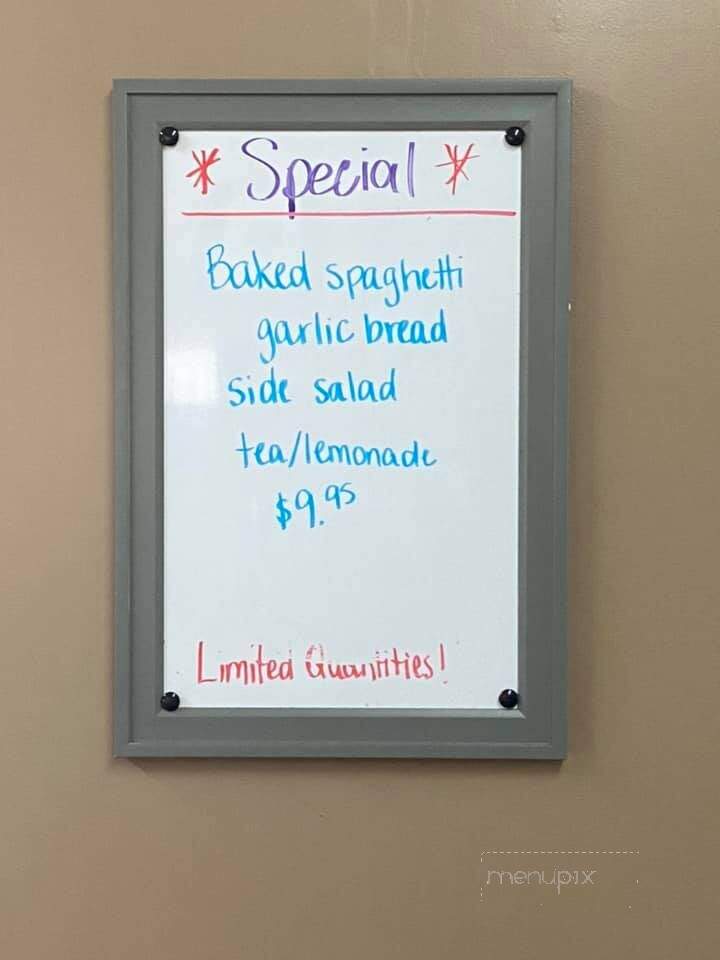 * Special *
Baked spaghetti
garlic bread
side salad
tea/lemonade
$9.95
Limited Quantities!
menupix